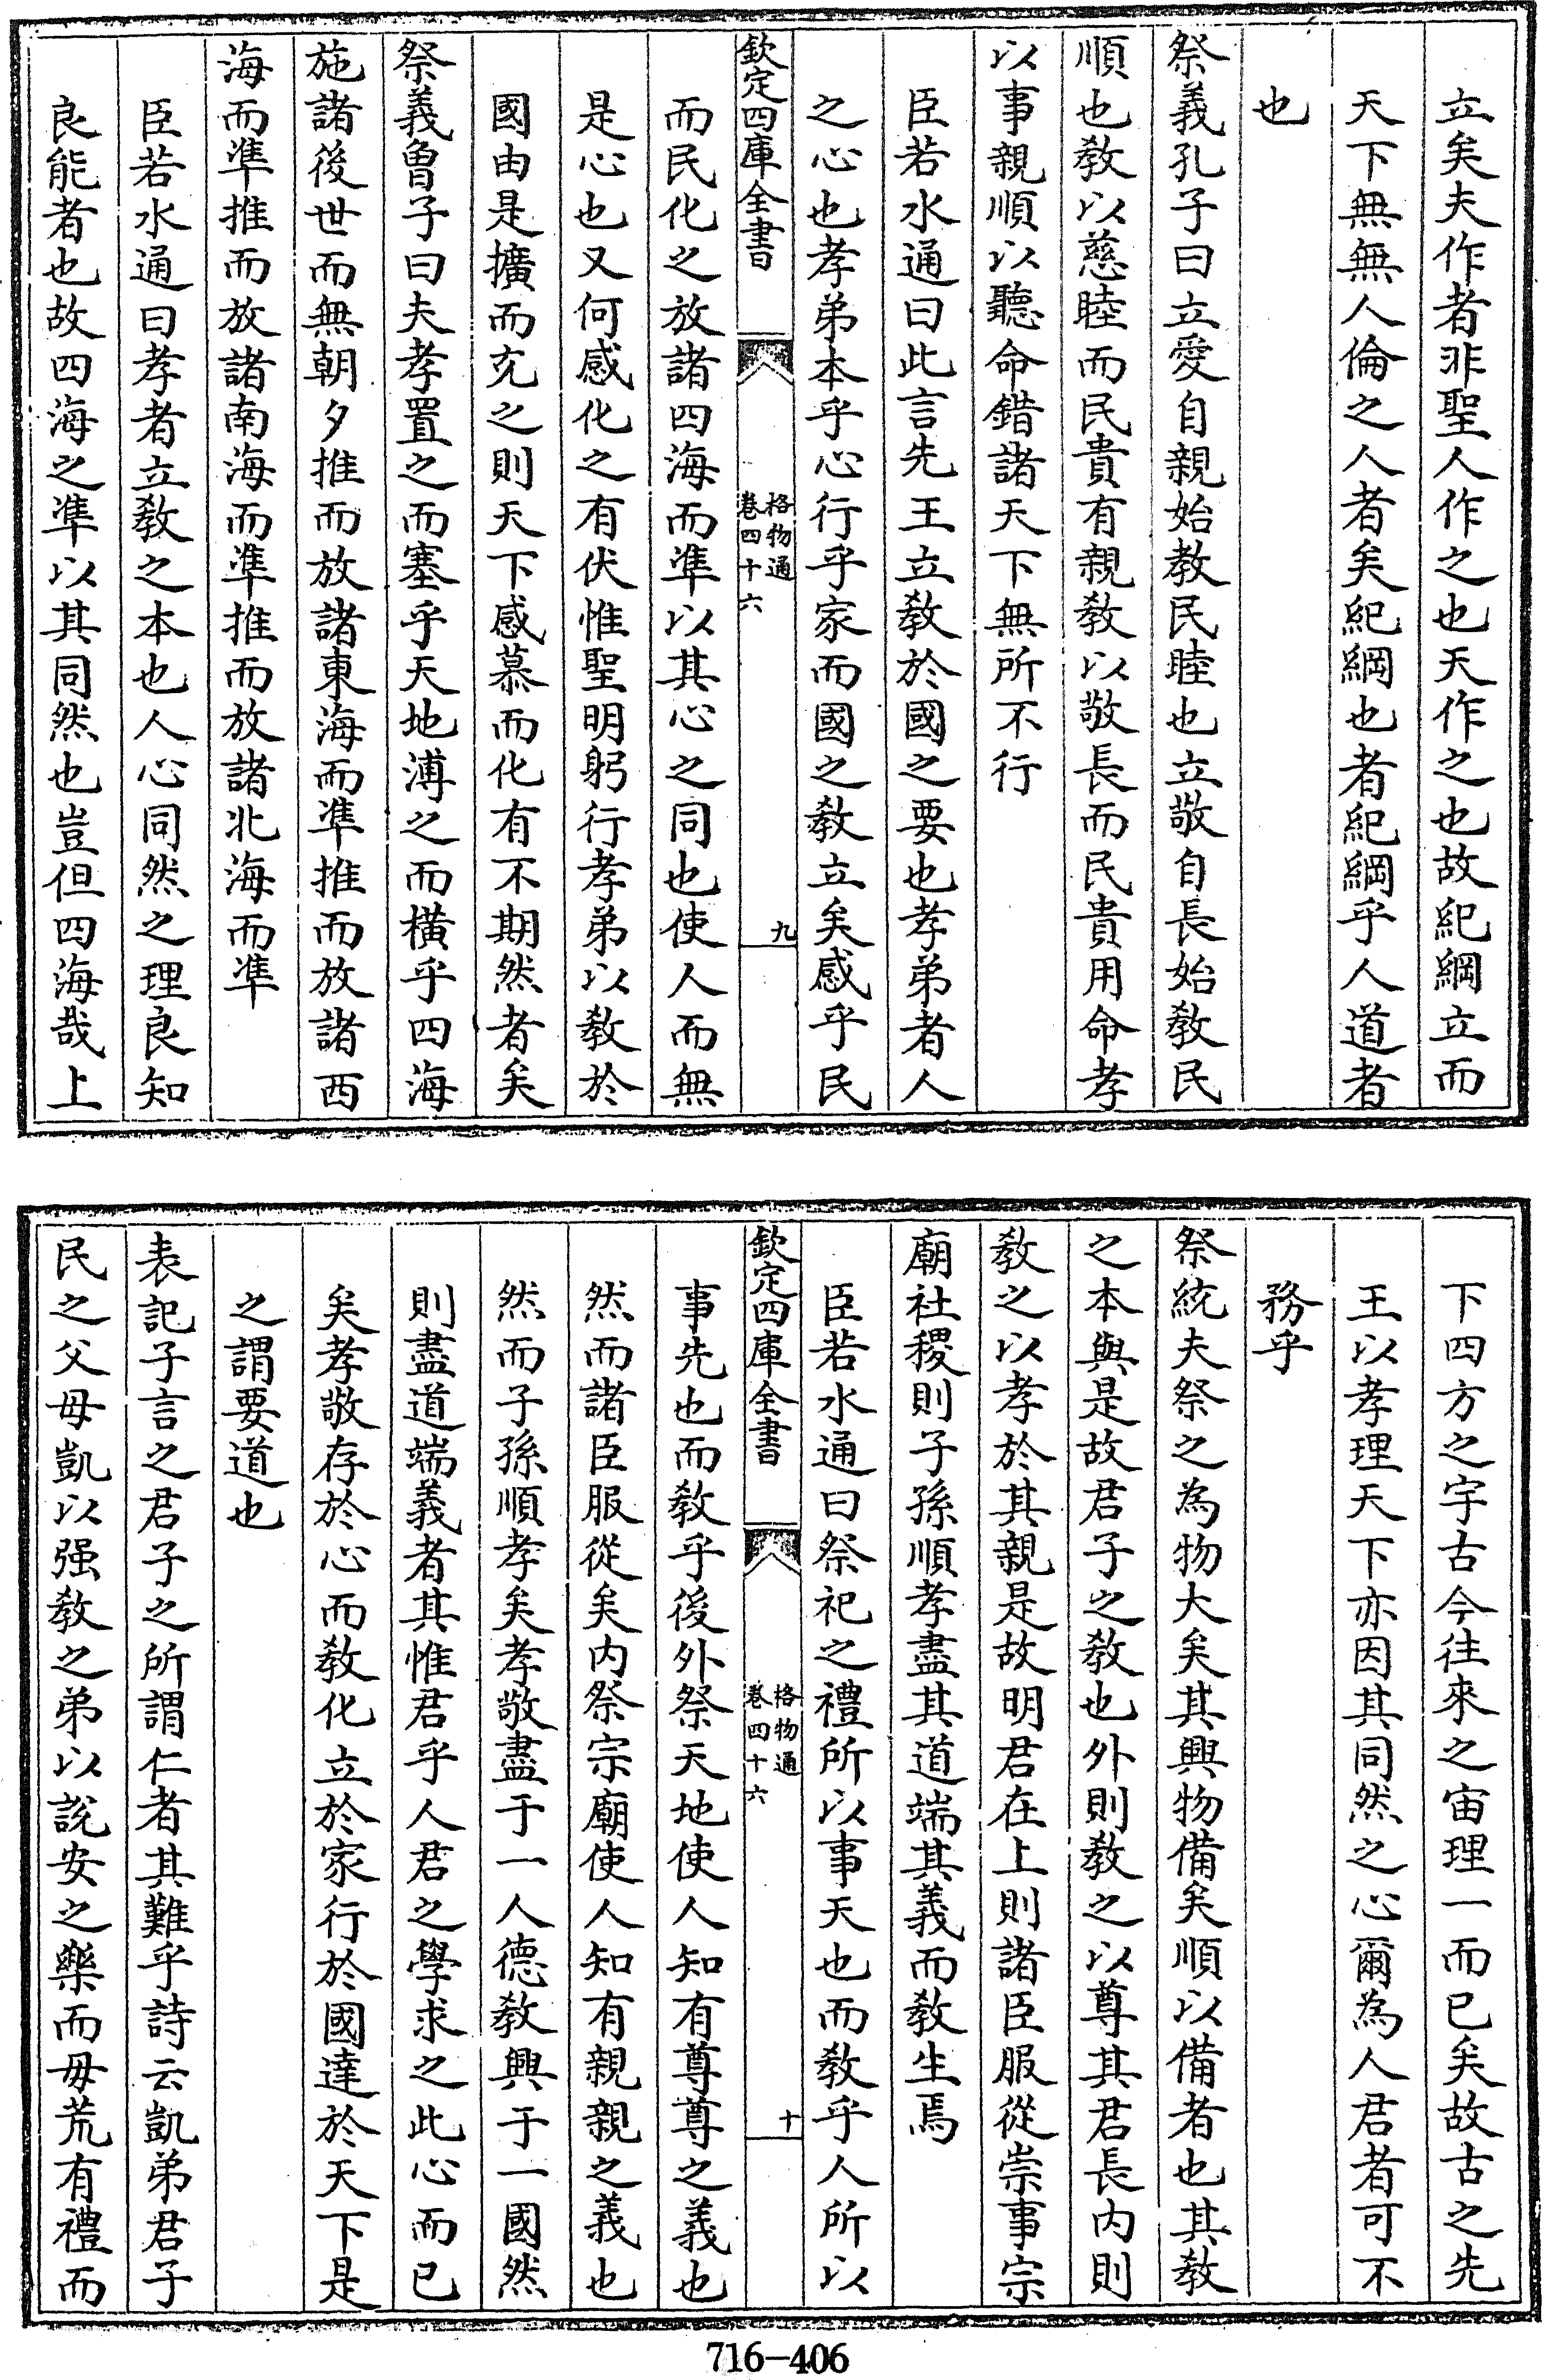 立矣夫作者非聖人作之也天作之也故紀綱立而
天下無無人倫之人者矣紀綱也者紀綱乎人道者
也
祭義孔子曰立愛自親始教民睦也立敬自長始教民
順也教以慈睦而民貴有親教以敬長而民貴用命孝
以事親順以聽命錯諸天下無所不行
臣若水通曰此言先王立教於國之要也孝弟者人
之心也孝弟本乎心行乎家而國之教立矣感乎民
欽定四庫全書
格物通
卷四十六
九
而民化之放諸四海而凖以其心之同也使人而無
是心也又何感化之有伏惟聖明躬行孝弟以教於
國由是擴而充之則天下感慕而化有不期然者矣
祭義曾子曰夫孝置之而塞乎天地溥之而橫乎四海
施諸後世而無朝夕推而放諸東海而凖推而放諸西
海而凖推而放諸南海而凖推而放諸北海而凖
臣若水通曰孝者立教之本也人心同然之理良知
良能者也故四海之凖以其同然也豈但四海哉上
下四方之宇古今往來之宙理一而已矣故古之先
王以孝理天下亦因其同然之心爾為人君者可不
務乎
祭統夫祭之為物大矣其興物備矣順以備者也其教
之本與是故君子之教也外則教之以尊其君長内則
教之以孝於其親是故明君在上則諸臣服從崇事宗
廟社稷則子孫順孝盡其道端其義而教生焉
臣若水通曰祭祀之禮所以事天也而教乎人所以
欽定四庫全書
格物通
卷四十六
十
事先也而教乎後外祭天地使人知有尊尊之義也
然而諸臣服從矣内祭宗廟使人知有親親之義也
然而子孫順孝矣孝敬盡于一人德教興于一國然
則盡道端義者其惟君乎人君之學求之此心而已
矣孝敬存於心而教化立於家行於國達於天下是
之謂要道也
表記子言之君子之所謂仁者其難乎詩云凱弟君子
民之父母凱以强教之弟以說安之樂而毋荒有禮而
716-406